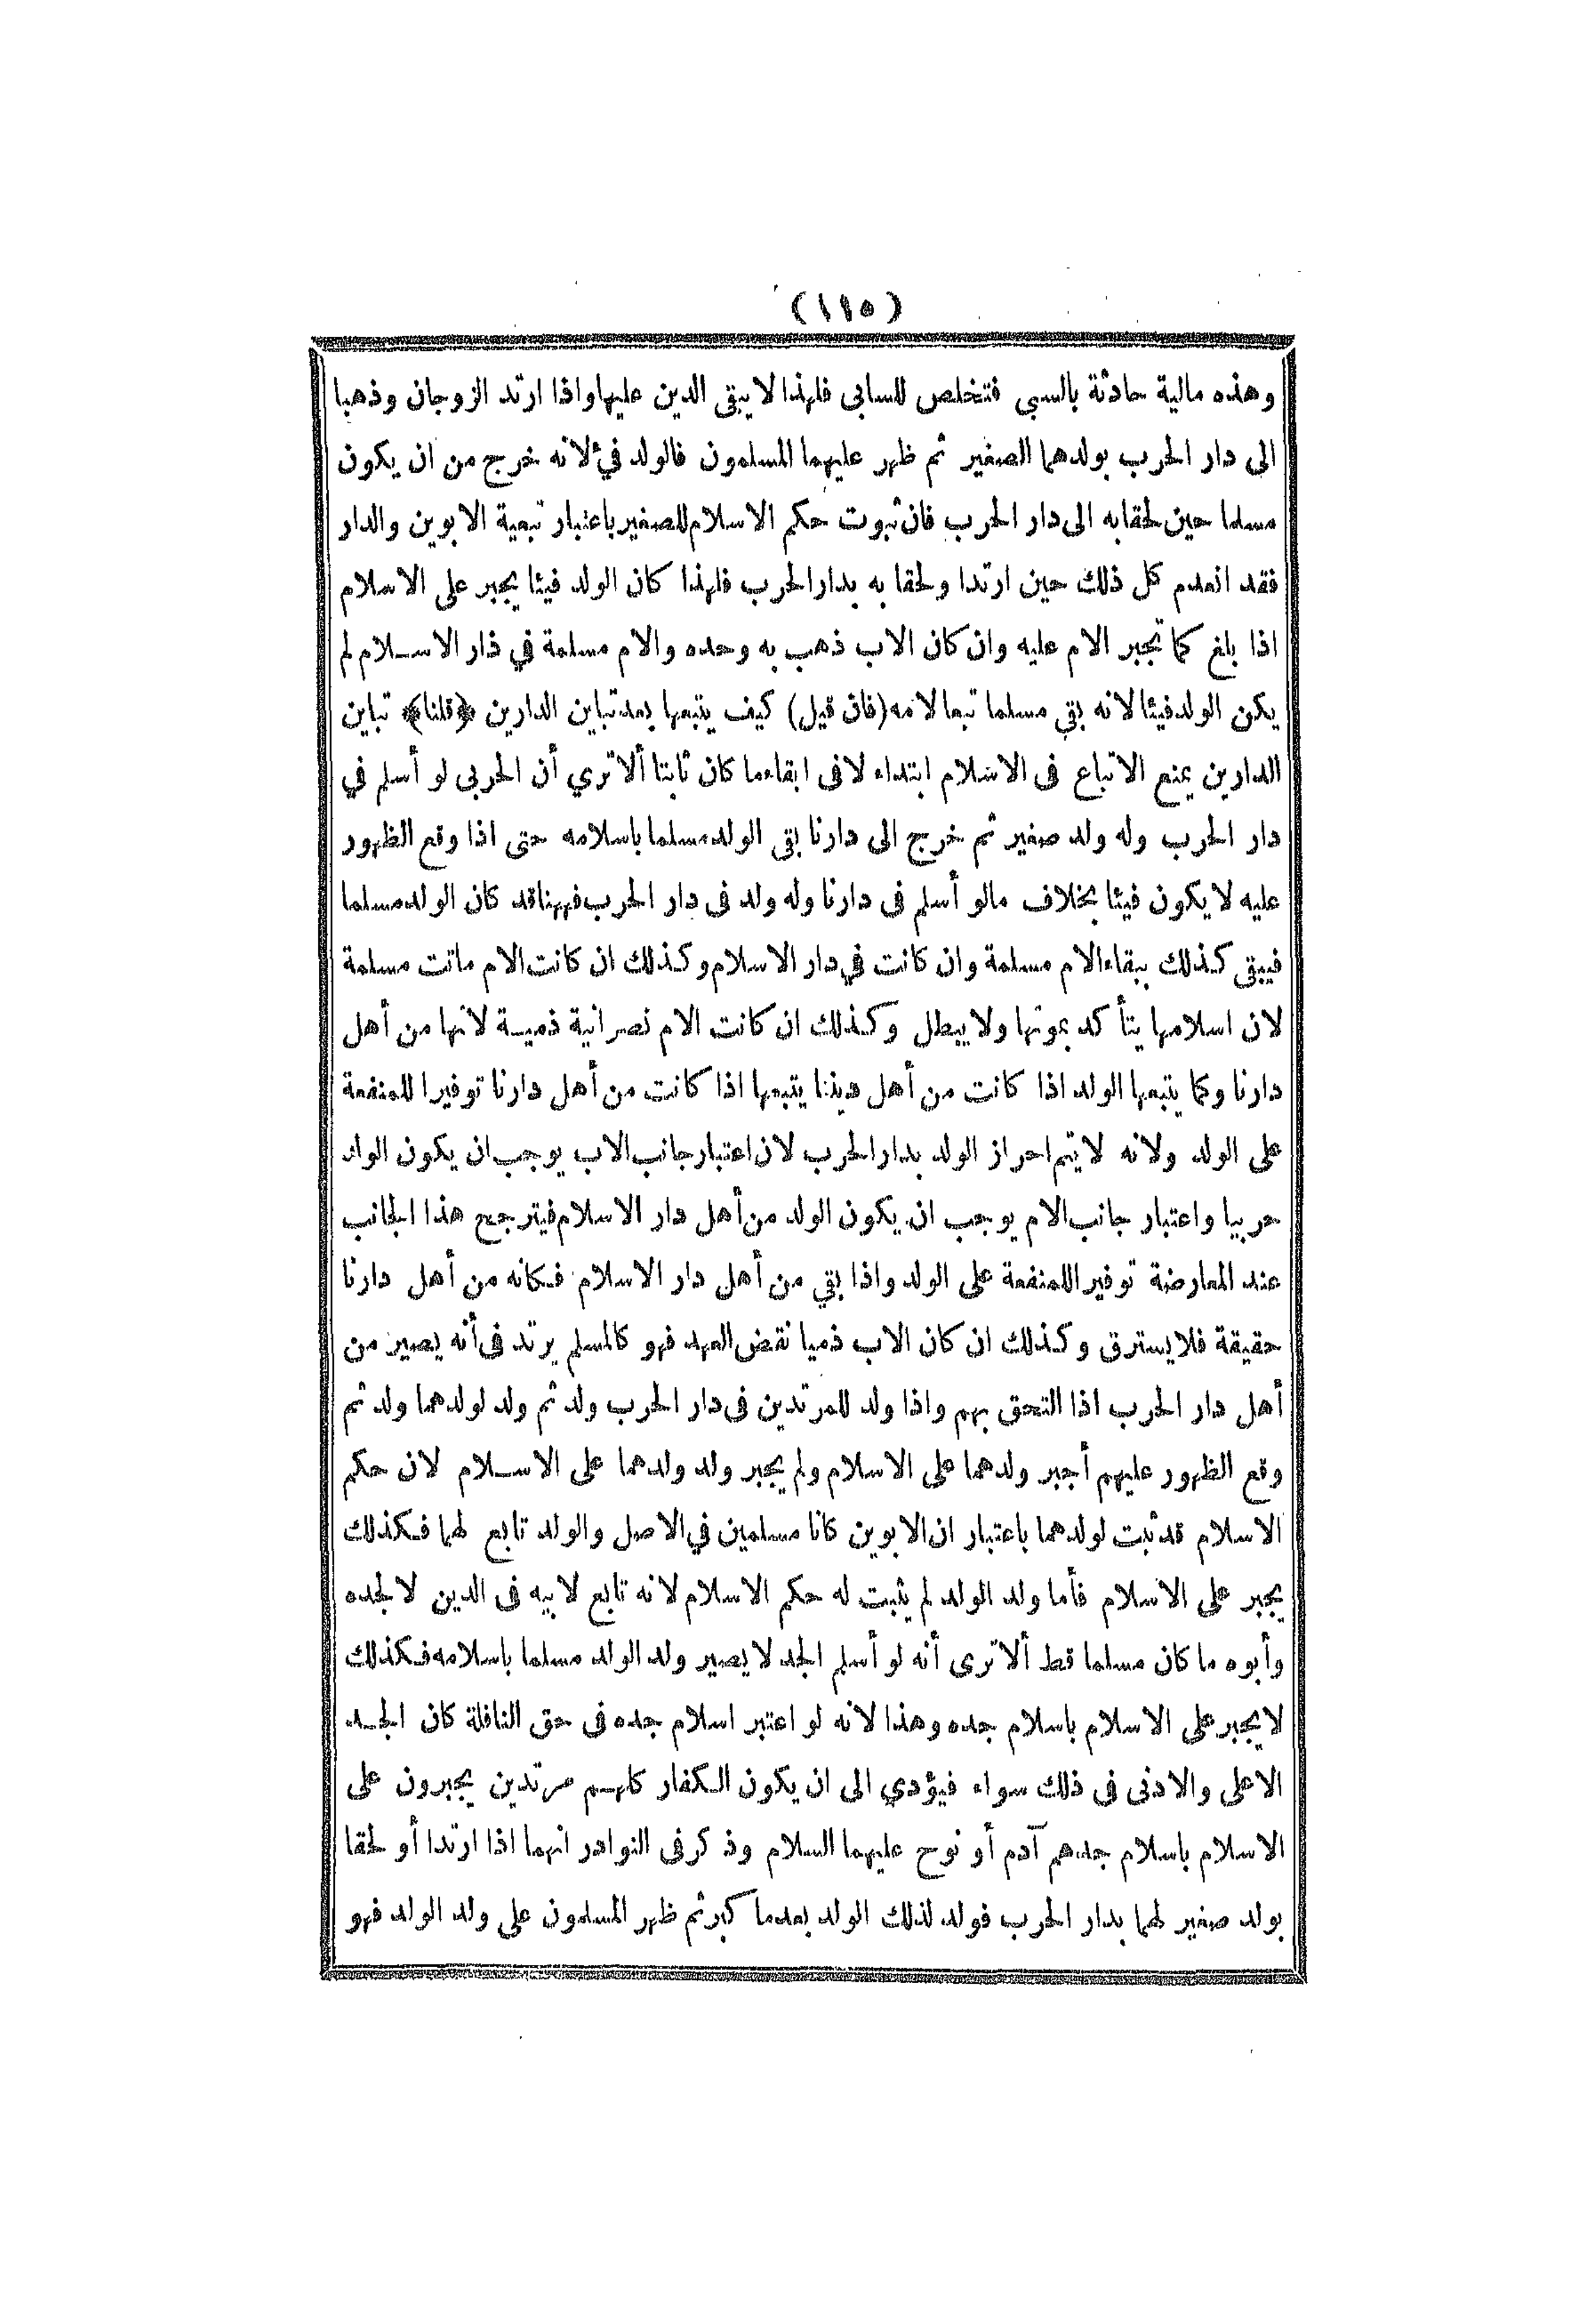 (١١٥)
وهذه مالية حادثة بالسبي فتخلص للسابى فلهذا لا يبقى الدين عليها واذا ارتد الزوجان وذهبا
الى دار الحرب بولدهما الصغير ثم ظهر عليهما المسلمون فالولد فئ لانه خرج من ان يكون
مسلما حين لحقا به الى دار الحرب فان ثبوت حكم الاسلام للصغير باعتبار تبعية الابوين والدار
فقد انعدم كل ذلك حين ارتدا ولحقا به بدار الحرب فلهذا كان الولد فيئا يجبر على الاسلام
اذا بلغ كما تجبر الام عليه وان كان الاب ذهب به وحده والام مسلمة في دار الاسلام لم
يكن الولد فيئا لانه بقي مسلما تبعا لامه (فان قيل) كيف يتبعها بعد تباين الدارين ﴿قلنا﴾ تباين
الدارين يمنع الاتباع فى الاسلام ابتداء لا فى ابقاء ما كان ثابتا ألا تري أن الحربى لو أسلم في
دار الحرب وله ولد صغير ثم خرج الى دارنا بقى الولد مسلما باسلامه حتى اذا وقع الظهور
عليه لا يكون فيئا بخلاف مالو أسلم فى دارنا وله ولد فى دار الحرب فههنا قد كان الولد مسلما
فيبقى كذلك ببقاء الام مسلمة وان كانت في دار الاسلام وكذلك ان كانت الام ماتت مسلمة
لان اسلامها يتأكد بموتها ولا يبطل وكذلك ان كانت الام نصرانية ذمية لانها من أهل
دارنا وكما يتبعها الولد اذا كانت من أهل ديننا يتبعها اذا كانت من أهل دارنا توفيرا للمنفعة
على الولد ولانه لا يتم احراز الولد بدار الحرب لان اعتبار جانب الاب يوجب ان يكون الولد
حربيا واعتبار جانب الام يوجب ان يكون الولد من أهل دار الاسلام فيترجح هذا الجانب
عند المعارضة توفيرا للمنفعة على الولد واذا بقي من أهل دار الاسلام فكانه من أهل دارنا
حقيقة فلا يسترق وكذلك ان كان الاب ذميا نقض العهد فهو كالمسلم يرتد فى أنه يصير من
أهل دار الحرب اذا التحق بهم واذا ولد للمرتدين فى دار الحرب ولد ثم ولد لولدهما ولد ثم
وقع الظهور عليهم أجبر ولدهما على الاسلام ولم يجبر ولد ولدهما على الاسلام لان حكم
الاسلام قد ثبت لولدهما باعتبار ان الابوين كانا مسلمين في الاصل والولد تابع لهما فكذلك
يجبر على الاسلام فأما ولد الولد لم يثبت له حكم الاسلام لانه تابع لابيه فى الدين لا لجده
وأبوه ما كان مسلما قط ألا ترى أنه لو أسلم الجد لا يصير ولد الولد مسلما باسلامه فكذلك
لا يجبر على الاسلام باسلام جده وهذا لانه لو اعتبر اسلام جده فى حق النافلة كان الجد
الاعلى والادنى فى ذلك سواء فيؤدي الى ان يكون الكفار كلهم مرتدين يجبرون على
الاسلام باسلام جدهم آدم أو نوح عليهما السلام وذكر فى النوادر انهما اذا ارتدا أو لحقا
بولد صغير لهما بدار الحرب فولد لذلك الولد بعدما كبر ثم ظهر المسلمون على ولد الولد فهو